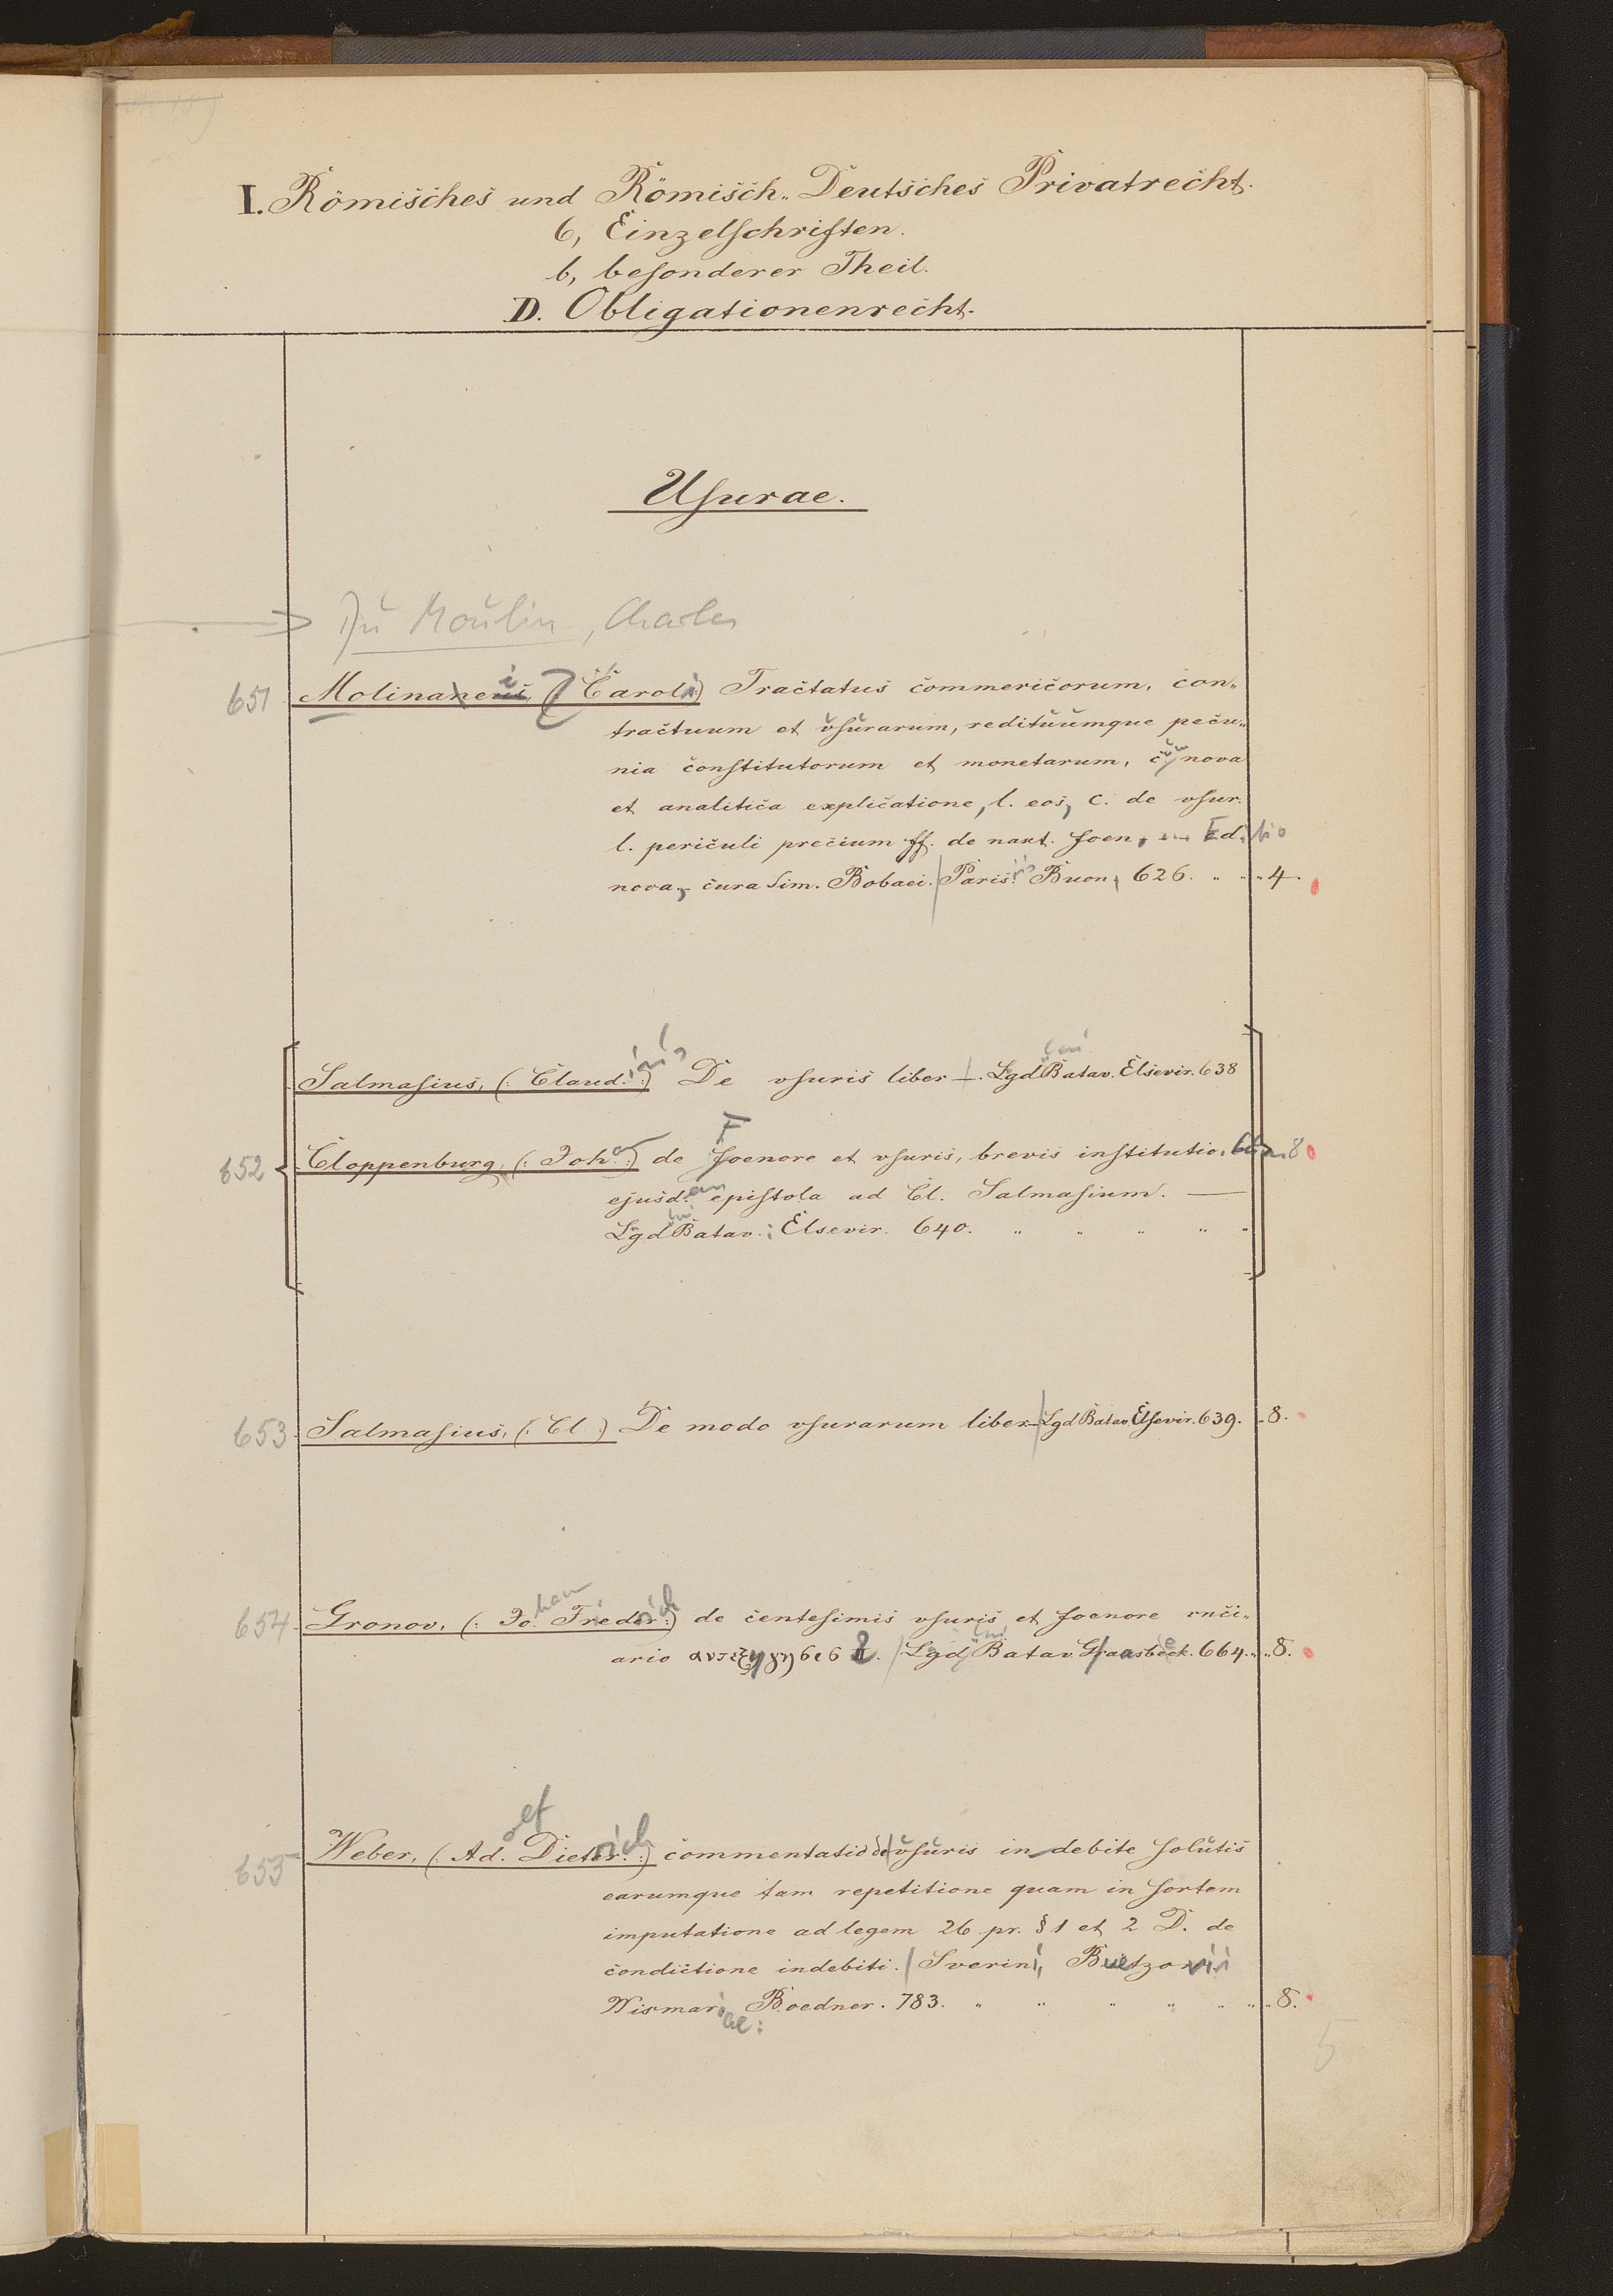 I. Römisches und Römisch-Deutsches Privatrecht.
6, Einzelschriften.
b, besonderer Theil.
D. Obligationenrecht.
Usurae.
Du Moulin, Charles
651 Molinaneus, (: Caroli :) Tractatus commericorum, con-
tractuum et vsurarum, redituumque pecu-
nia constitutorum et monetarum, cum nova
et analitica explicatione, l. eos, C. de vsur.
l. periculi precium ff. de naut. foen. Editio
nova, cura Sim. Bobaei. Parisiis Buon, 626. 4.
Salmasius, (: Claudius :) De vsuris liber. Lgd Batav. Elsevir. 638
652 Cloppenburg, (: Joh. :) de Foenore et vsuris, brevis institutio, 8
ejusd. epistola ad Cl. Salmasium.
Lgd Batav. Elsevir. 640.
653 Salmasius, (: Cl :) De modo vsurarum liber. Lgd Batav. Elsevir. 639. 8.
654 Gronov, (: Johan Friederich :) de centesimis vsuris et foenore vnci-
ario II. Lgd Batav. Graasbeck. 664. 8.
655 Weber, (: Adolf Dieterich :) commentatio de vsuris indebite solutis
earumque tam repetitione quam in sortem
imputatione ad legem 26 pr. § 1 et 2 D. de
condictione indebiti. Sverini, Buetzovii
Wismariae: Boedner. 783. 8.
5